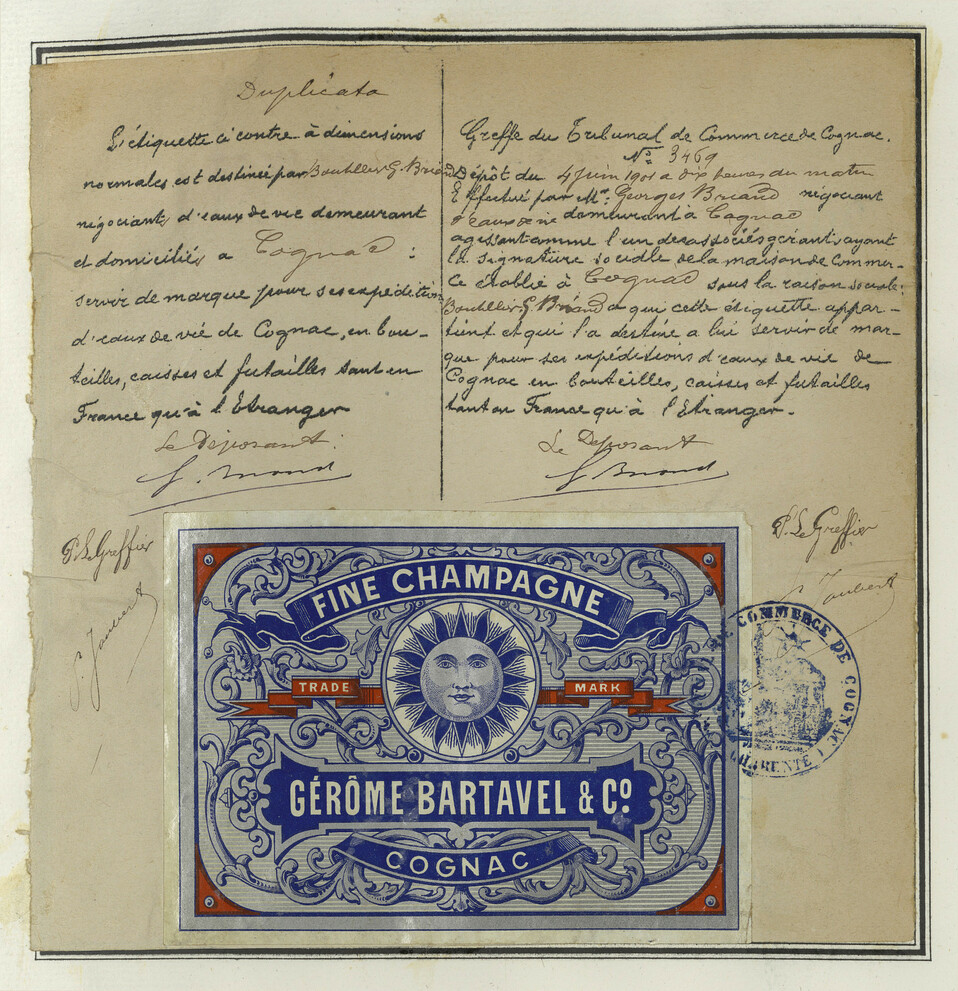 Duplicata
L'étiquette ci contre à dimensions
normales est destinée par Boutillier G. Briand
négociants d'eaux de vie demeurant
et domiciliés a Cognac :
servir de marque pour ses expéditions
d'eaux de vie de Cognac, en bou-
teilles, caisses et futailles tant en
France qu'à l'Etranger
Le Déposant.
G. Briand
P. Le Greffier
Greffe du Tribunal de Commerce de Cognac.
No. 3469
Dépôt du 4 Juin 1901 a dix heures du matin
Effectué par Mr. Georges Briand négociant
d'eaux de vie demeurant a Cognac
agissant comme l'un des associés gérants, ayant
la signature sociale de la maison de Commer-
ce établie à Cognac sous la raison sociale:
Boutillier G. Briand a qui cette étiquette appar-
tient et qui l'a destine a lui servir de mar-
que pour ses expéditions d'eaux de vie de
Cognac en bouteilles, caisses et futailles
tant en France qu'à l'Etranger.
Le Déposant
G Briand
P. Le Greffier
J. Joubert
FINE CHAMPAGNE
TRADE MARK
GÉRÔME BARTAVEL & Co.
COGNAC
DE COMMERCE DE COGNAC
CHARENTE